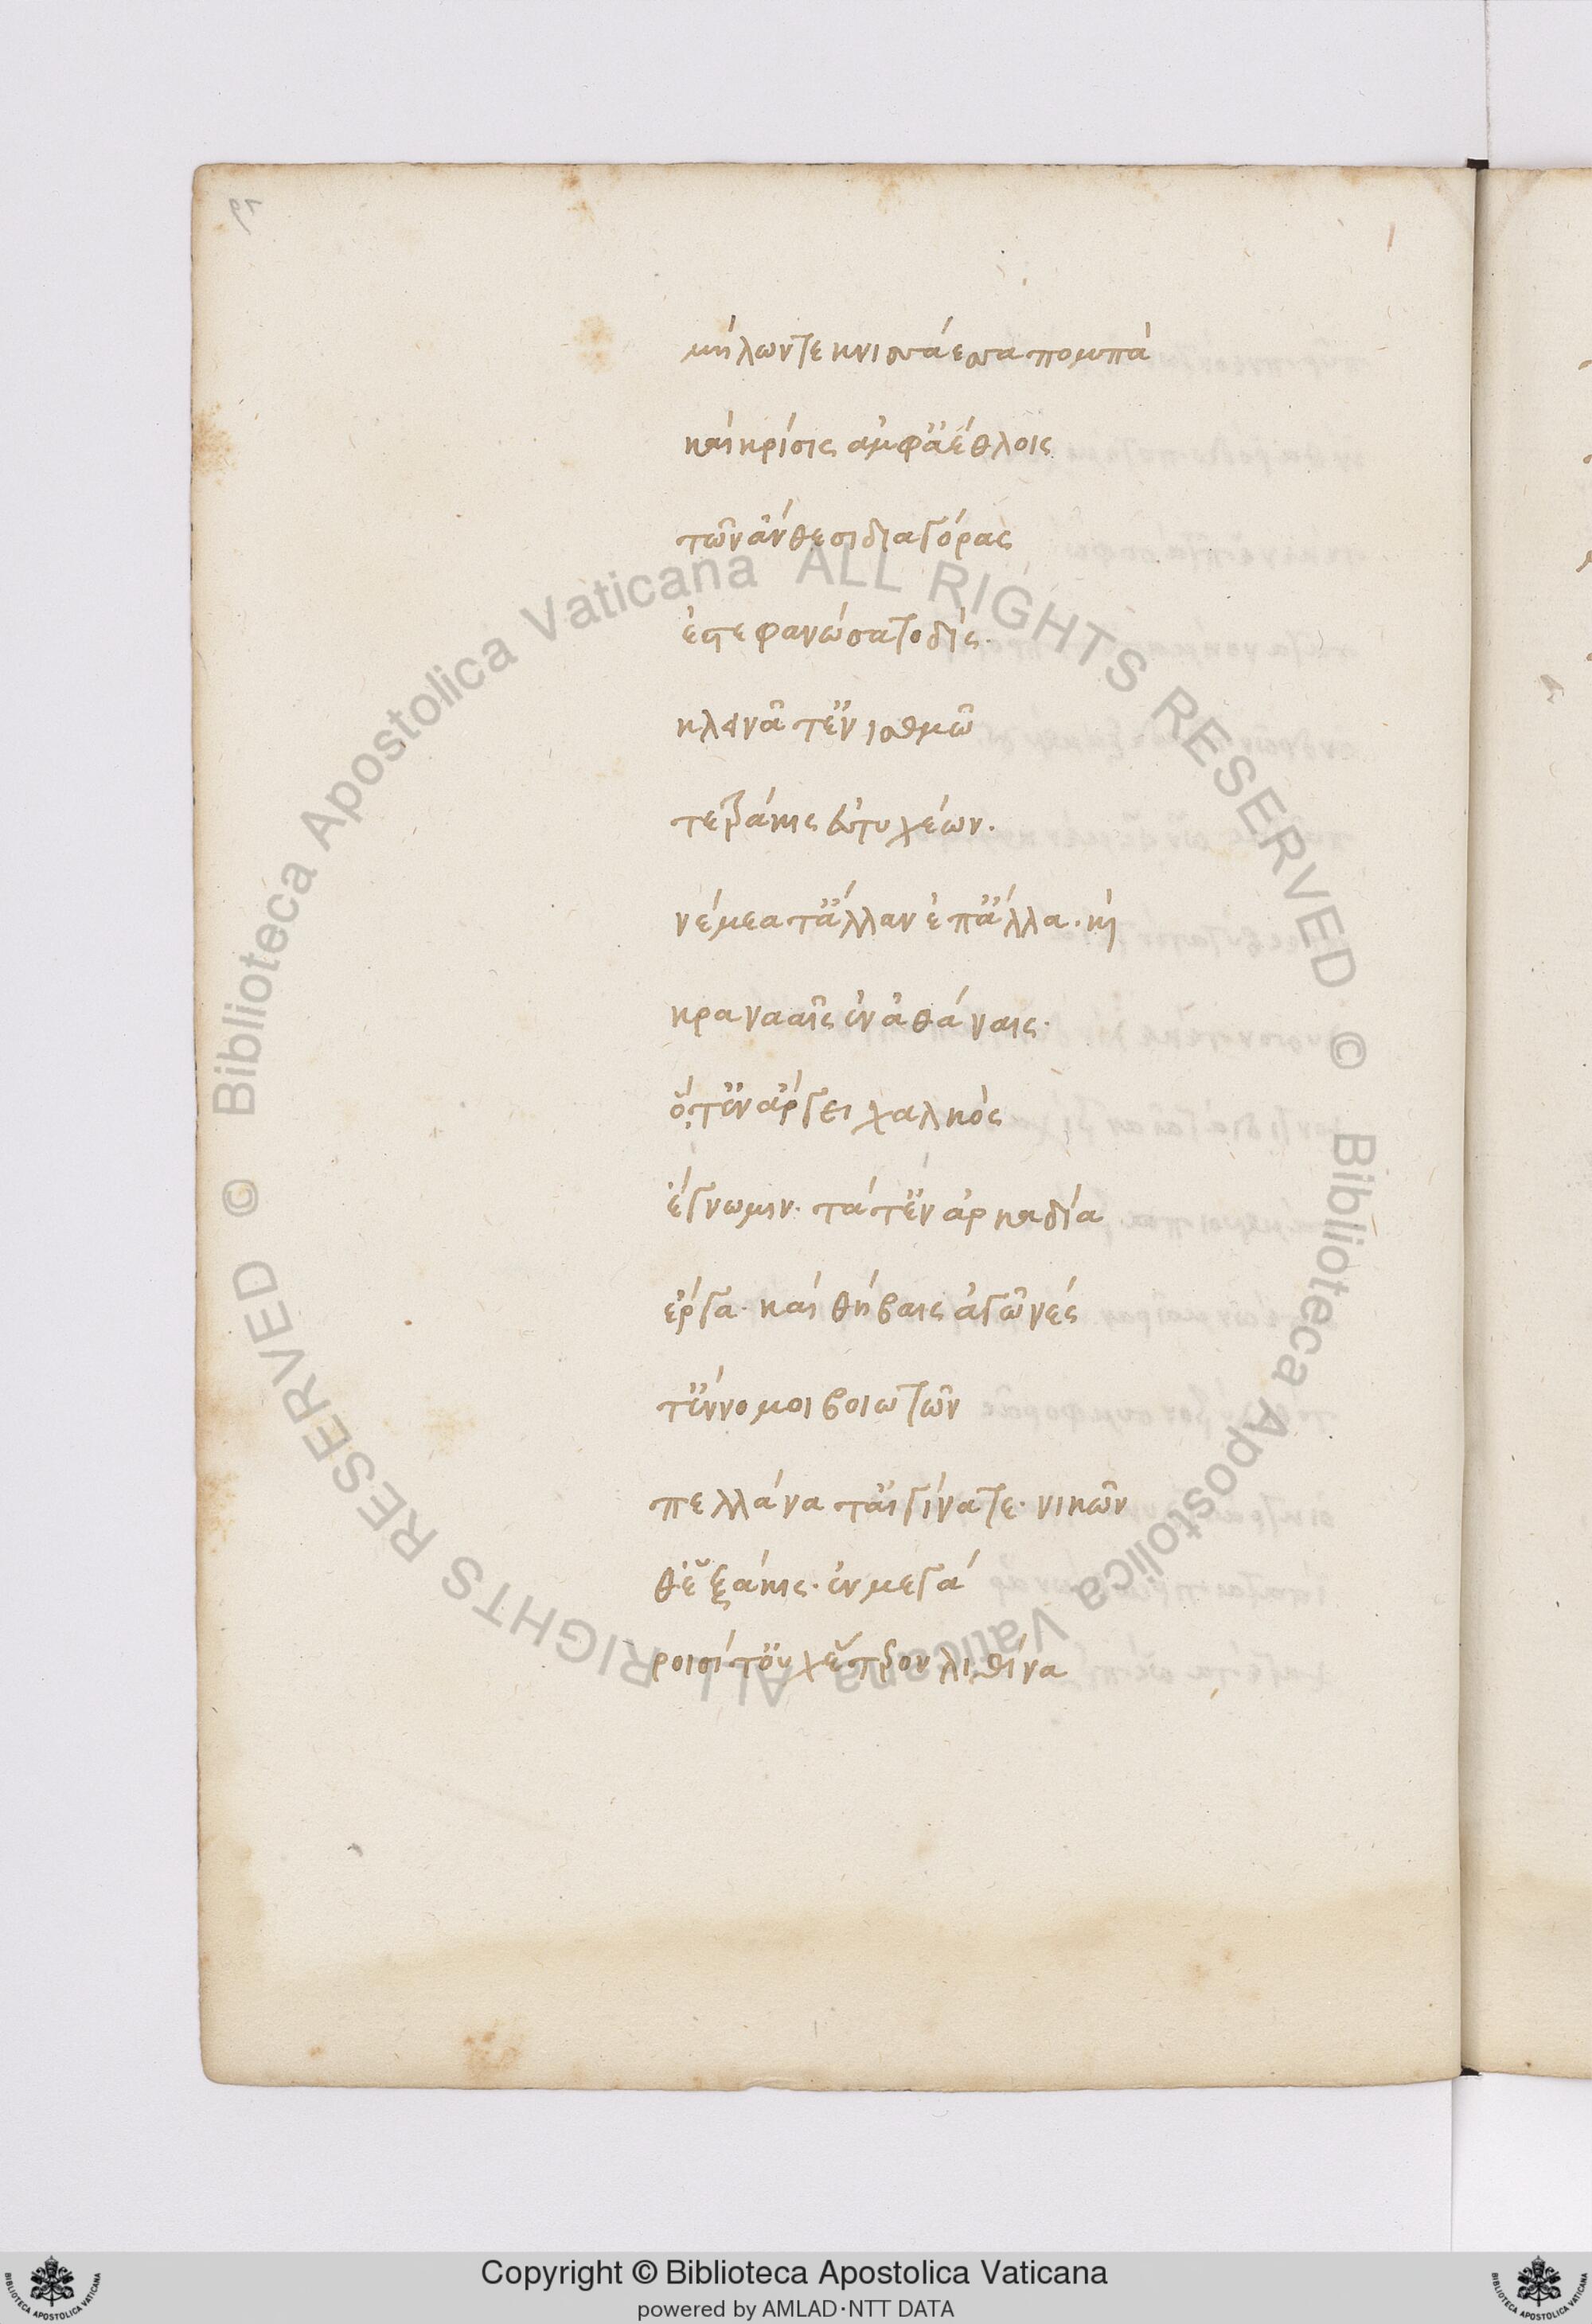 μήλων τε κνισσάεσσα πομπά
καὶ κρίσις ἀμφ' ἀέθλοις
τῶν ἄνθεσι διαγόρας
ἐστεφανώσατο δὶς.
κλεινᾶ τ' ἐν ἰσθμῶ
τετράκις εὐτυχέων.
νέμεα τ' ἄλλαν ἐπ' ἄλλα. κὶ
κρανααῖς ἐν ἀθάναις.
ὅ, τ' ἐν ἄργει χαλκὸς
ἔγνω μιν. τά τ' ἐν ἀρκαδία
ἔργα. καὶ θήβαις ἀγῶνές
τ' ἔννομοι βοιωτῶν
πελλάνα τ' αἴγινά τε. νικῶν
θ' ἑξάκις. ἐν μεγά
ροισί τ' οὐχ ἕτερον λιθίνα
Copyright © Biblioteca Apostolica Vaticana
powered by AMLAD·NTT DATA
© Biblioteca Apostolica Vaticana ALL RIGHTS RESERVED © Biblioteca Apostolica Vaticana ALL RIGHTS RESERVED